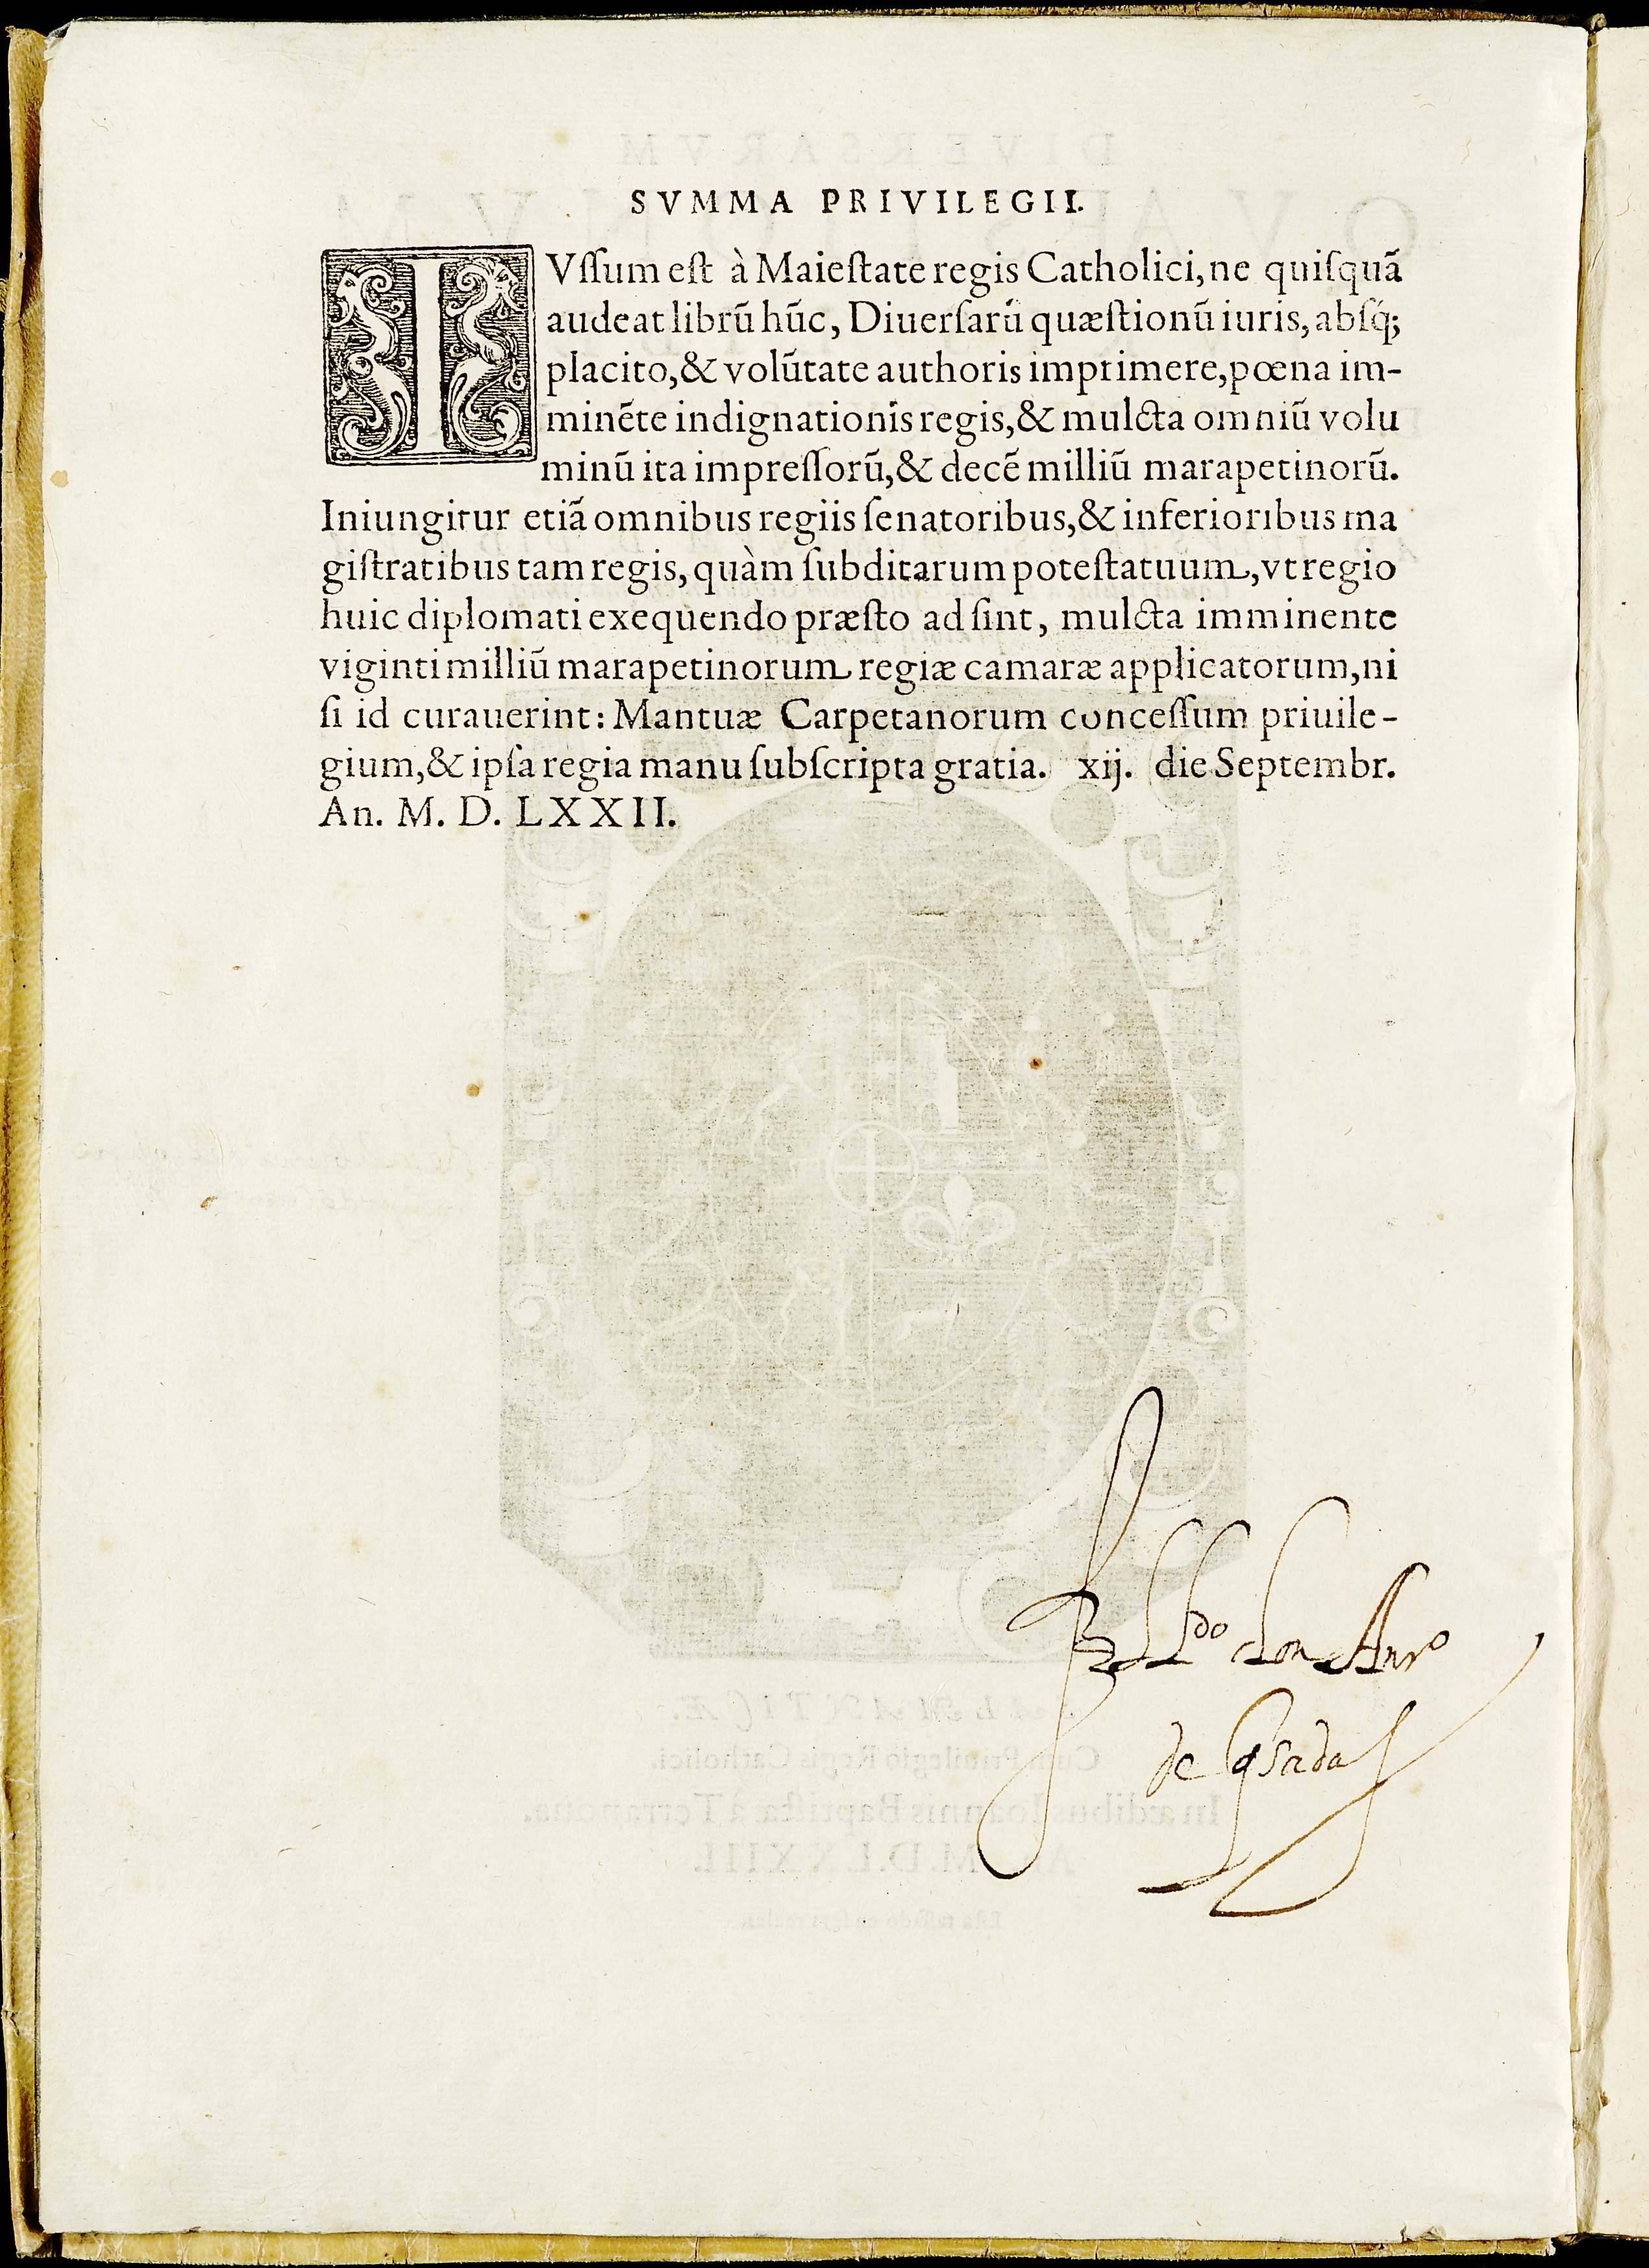 SVMMA PRIVILEGII.
IVſſum eſt à Maieſtate regis Catholici, ne quiſquã
audeat librũ hũc, Diuerſarũ quæſtionũ iuris, abſq́;
placito, & volũtate authoris imprimere, pœna im-
minẽte indignationis regis, & mulcta omniũ volu
minũ ita impreſſorũ, & decẽ milliũ marapetinorũ.
Iniungitur etiã omnibus regiis ſenatoribus, & inferioribus ma
giſtratibus tam regis, quàm ſubditarum poteſtatuum, vt regio
huic diplomati exequendo præſto ad ſint, mulcta imminente
viginti milliũ marapetinorum regiæ camaræ applicatorum, ni
ſi id curauerint: Mantuæ Carpetanorum conceſſum priuile-
gium, & ipſa regia manu ſubſcripta gratia. xij. die Septembr.
An. M. D. LXXII.
don Anto
de Qsada